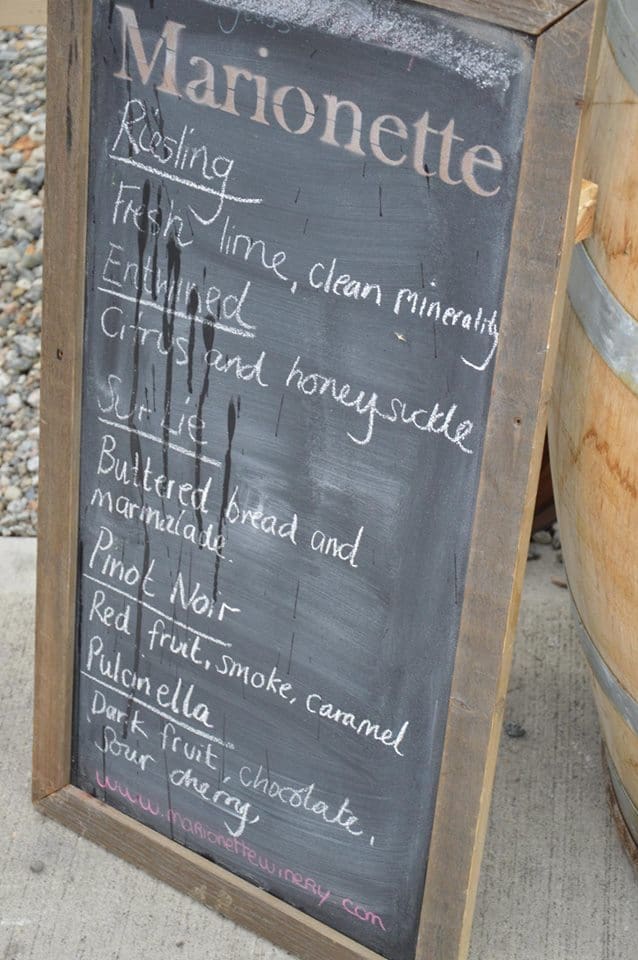 Marionette
Riesling
Fresh lime, clean minerality
Entwined
Citrus and honeysuckle
Sur Lie
Buttered bread and
marmalade.
Pinot Noir
Red fruit, smoke, caramel
Pulcinella
Dark fruit, chocolate,
Sour cherry,
www.marionettewinery.com